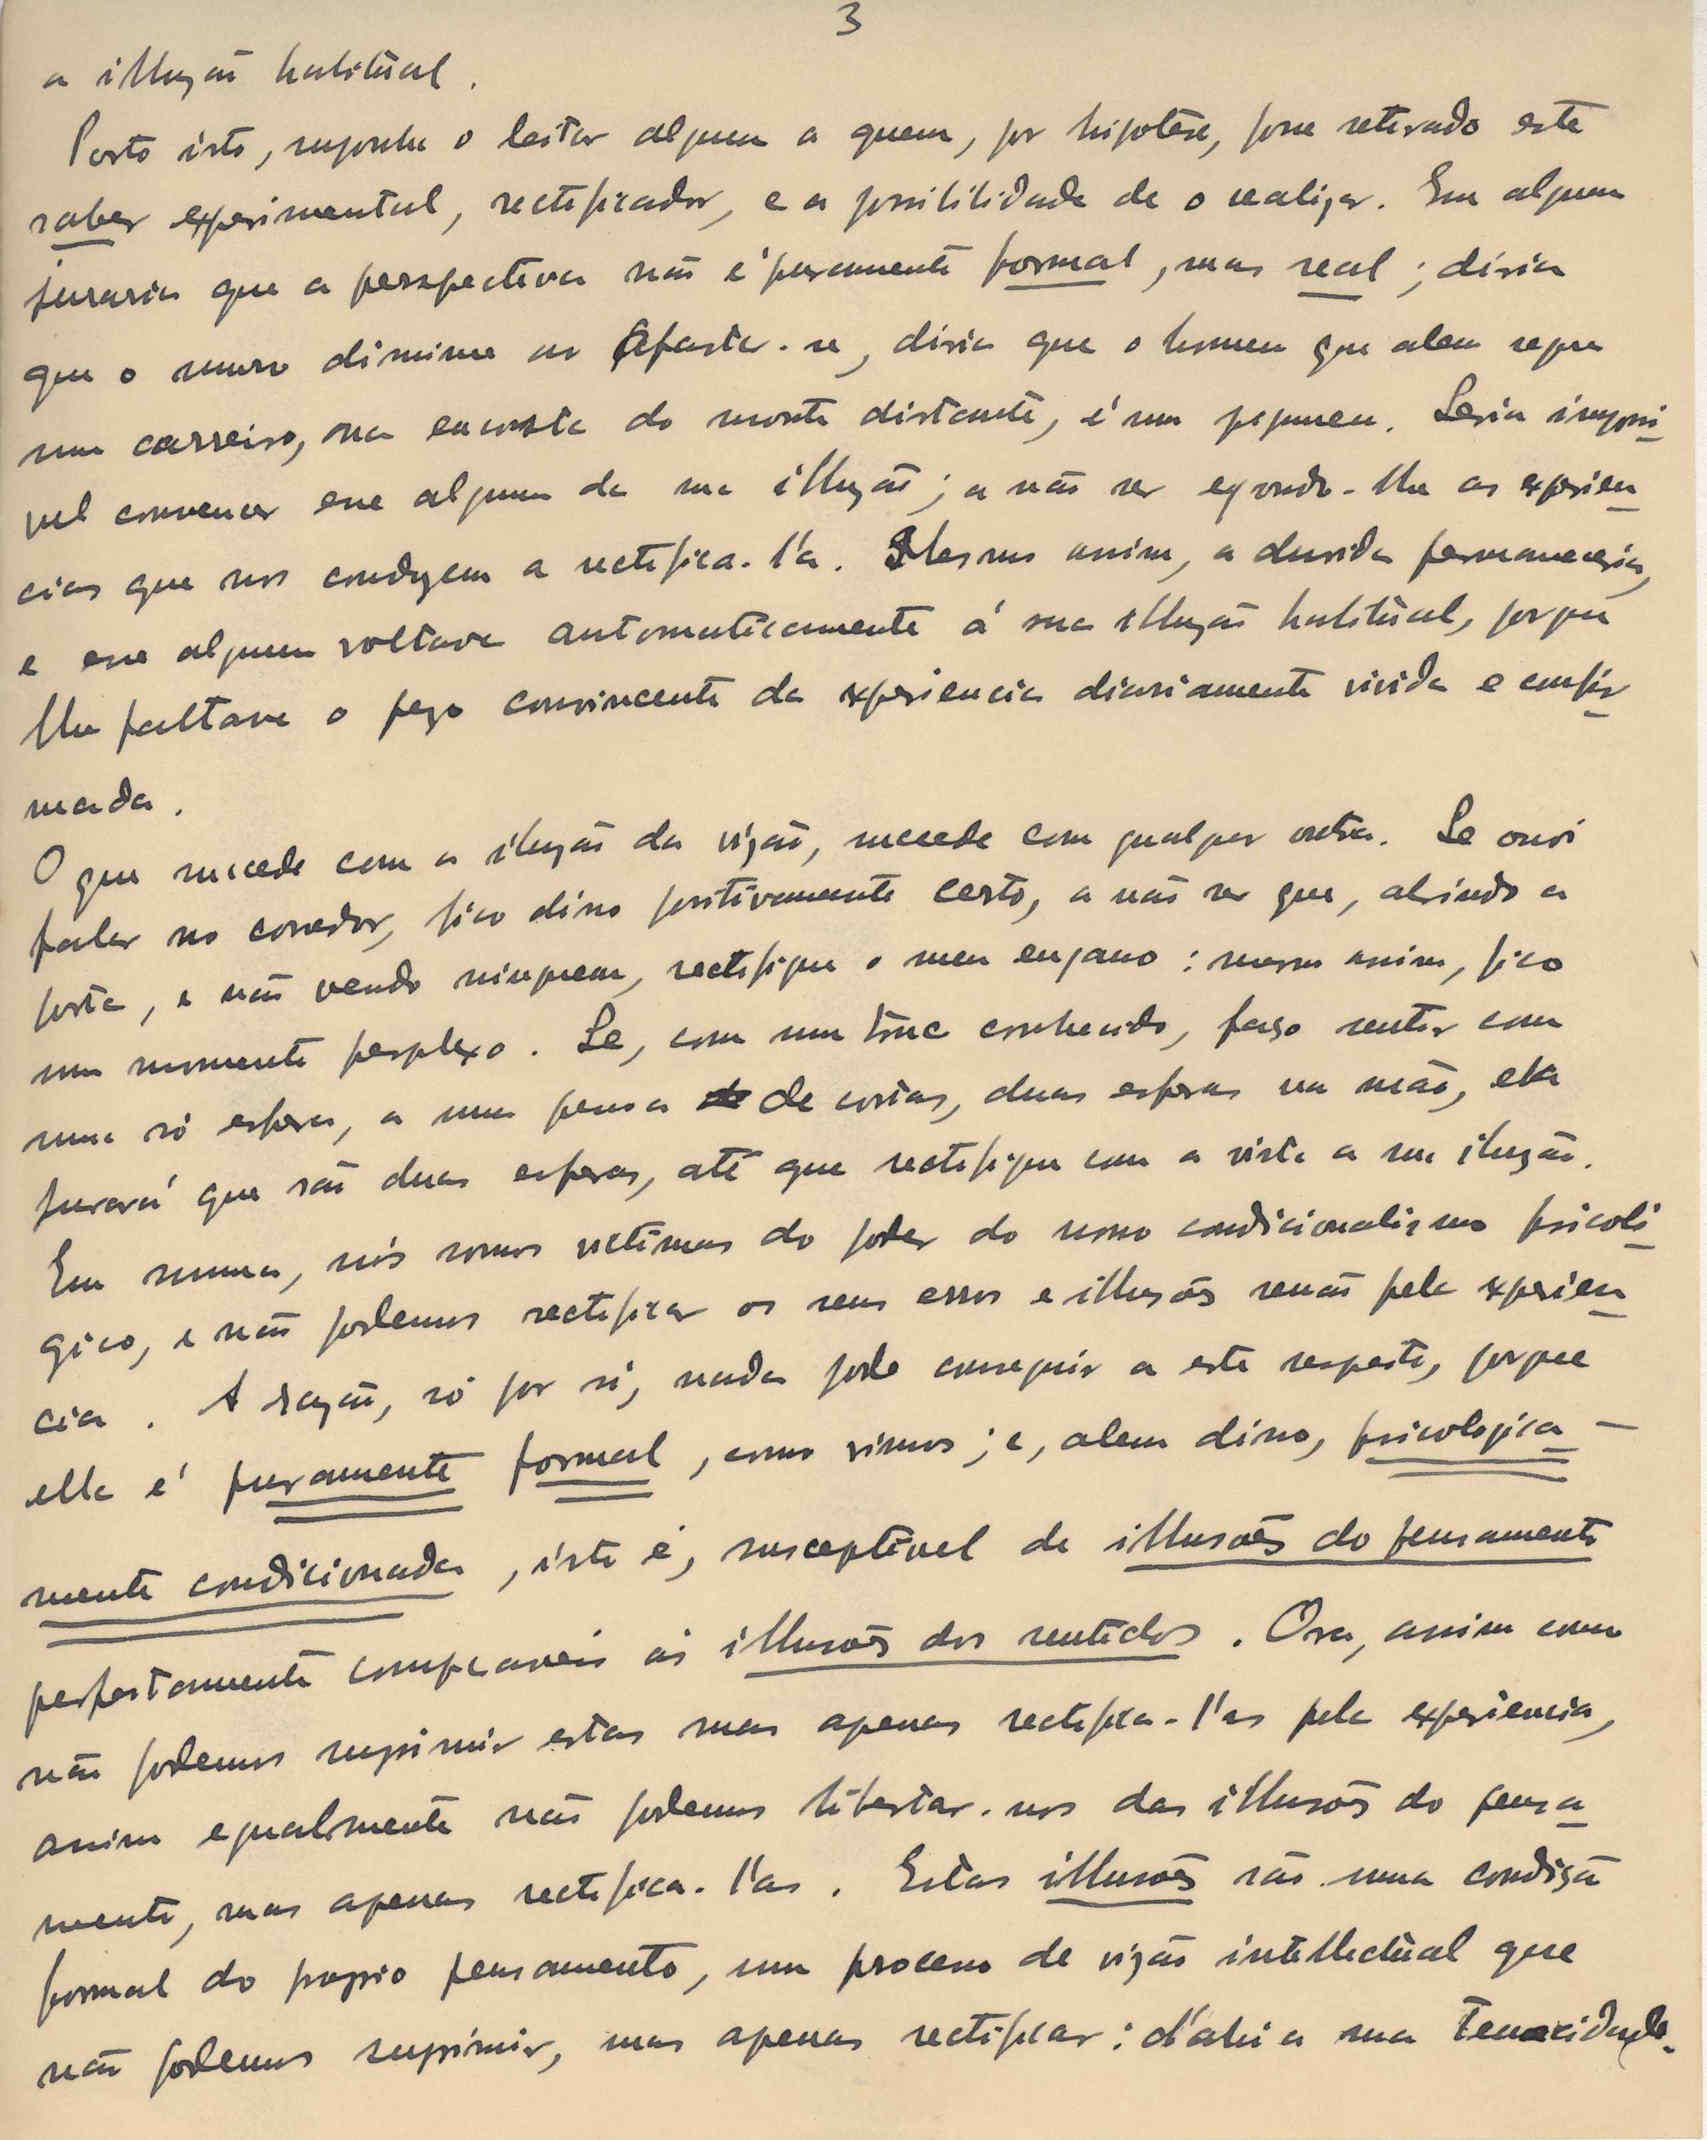 3
a illuzão habitùal.
Posto isto, suponha o leitor alguem a quem, por hipotese, fosse retirado este
saber experimental, rectificador, e a possibilidade de o realizar. Esse alguem
juraria que a perspectiva não é puramente formal, mas real; diria
que o muro diminue ao afastar-se, diria que o homem que alem segue
num carreiro, na encosta do monte distante, é um pigmeu. Seria impossi-
vel convencer esse alguem da sua illuzão; a não ser expondo-lhe as experien-
cias que nos conduzem a rectifica-l'a. Mesmo assim, a duvida permaneceria,
e esse alguem voltava automaticamente á sua illuzão habitùal, porque
lhe faltava o pezo convincente da experiencia diariamente vivida e confir-
mada.
O que sucede com a iluzão da vizão, sucede com qualquer outra. Se ouvi
falar no corredor, fico disso positivamente certo, a não ser que, abrindo a
porta, e não vendo ninguem, rectifique o meu engano: mesmo assim, fico
um momento perplexo. Se, com um truc conhecido, faço sentir com
uma só esfera, a uma pessoa de costas, duas esferas na mão, ela
jurará que são duas esferas, até que rectifique com a vista a sua iluzão.
Em summa, nós somos victimas do poder do nosso condicionalismo psicoló-
gico, e não podemos rectificar os seus erros e illusões senão pela experien-
cia. A razão, só por si, nada pode conseguir a este respeito, porque
ella é puramente formal, como vimos; e, alem disso, psicologica-
mente condicionada, isto é, susceptivel de illusões do pensamento
perfeitamente comparaveis ás illusões dos sentidos. Ora, assim como
não podemos suprimir estas mas apenas rectifica-l'as pela experiencia,
assim egualmente não podemos libertar-nos das illusões do pensa-
mento, mas apenas rectifica-l'as. Estas illusões são uma condição
formal do proprio pensamento, um processo de vizão intellectùal que
não podemos suprimir, mas apenas rectificar: d'ahi a sua tenacidade.